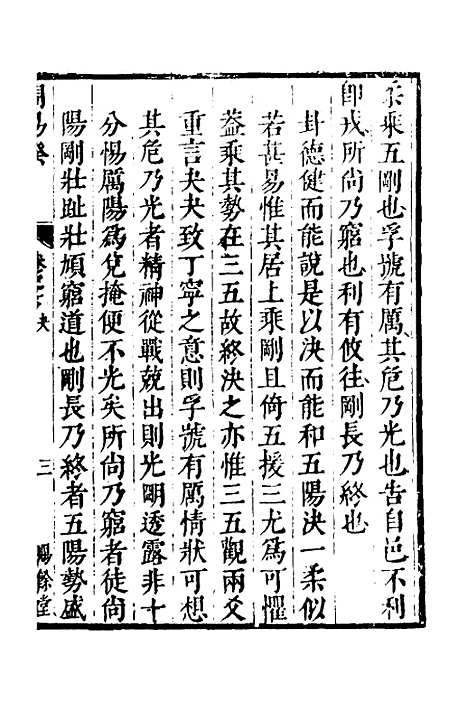 柔乘五剛也孚號有厲其危乃光也吿自邑不利
卽戎所尙乃窮也利有攸往剛長乃終也
卦德健而能說是以決而能和五陽決一柔似
若甚易惟其居上乘剛且倚五援三尤爲可懼
葢乘其勢在三五故終決之亦惟三五觀兩爻
重言夬夬致丁寧之意則孚號有厲情狀可想
其危乃光者精神從戰兢出則光明透露非十
分惕厲陽爲兌掩便不光矣所尙乃窮者徒尙
陽剛壯趾壯頄窮道也剛長乃終者五陽勢盛
周易
夬
三
賜餘堂